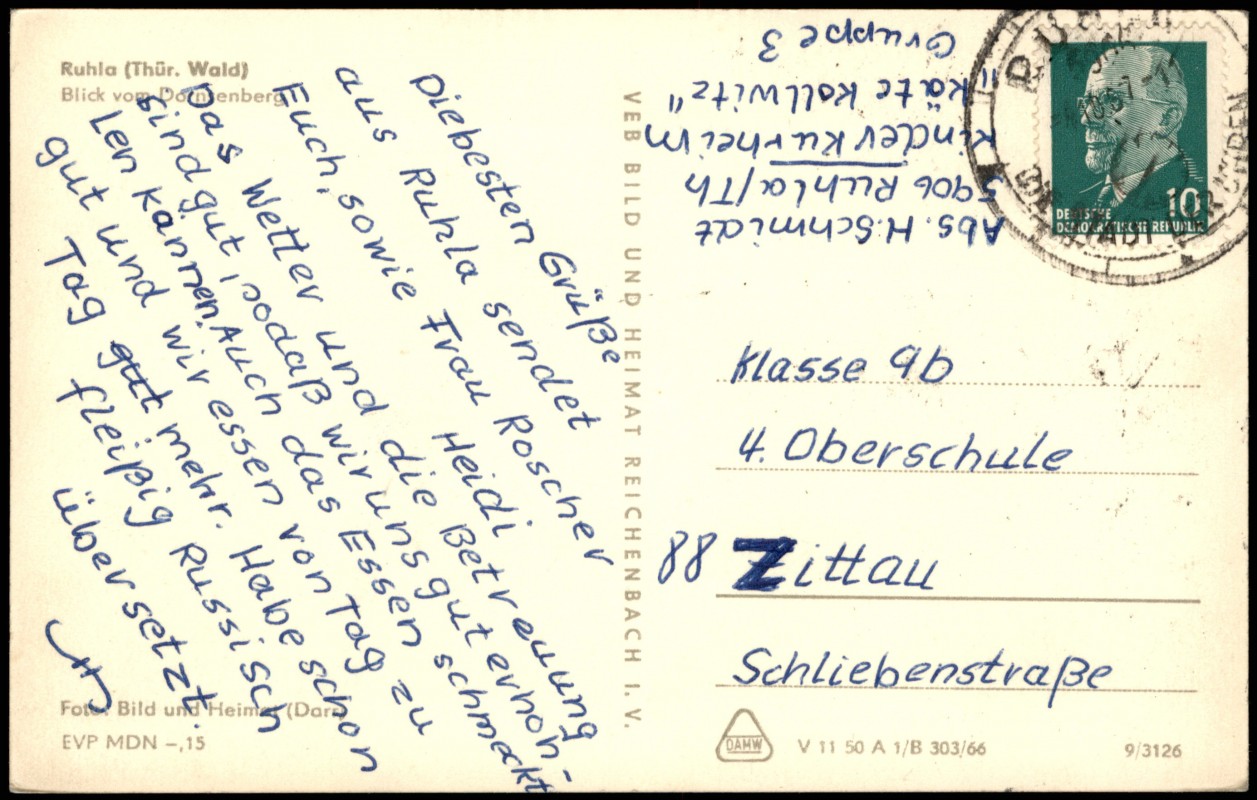 Ruhla (Thür. Wald)
Blick vom Dornsenberg
Diebesten Grüße
aus Ruhla sendet
Euch, sowie Frau Roscher
Heidi
Das Wetter und die Betreuung
sind gut, sodaß wir uns gut erhoh-
len kannen. Auch das Essen schmeckt
gut und wir essen von Tag zu
Tag gut mehr. Habe schon
fleißig Russisch
übersetzt.
Foto: Bild und Heimat (Dars)
EVP MDN –,15
VEB BILD UND HEIMAT REICHENBACH I. V.
Abs. H. Schmidt
5906 Ruhla/Th
Kinderkurheim
"Käte Kollwitz"
Gruppe 3
10
DEUTSCHE
DEMOKRATISCHE REPUBLIK
Klasse 9b
4. Oberschule
88 Zittau
Schliebenstraße
DAMW
V 11 50 A 1/B 303/66
9/3126